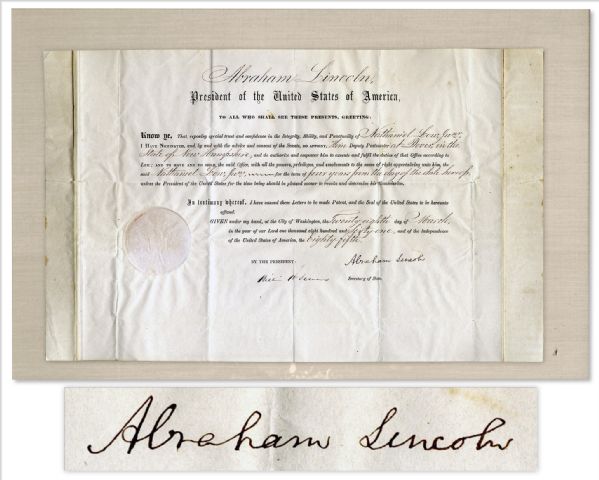 Abraham Lincoln,
President of the United States of America,
TO ALL WHO SHALL SEE THESE PRESENTS, GREETING:
Know ye, That, reposing special trust and confidence in the Integrity, Ability, and Punctuality of Nathaniel Low Junr.
I HAVE NOMINATED, and by and with the advice and consent of the Senate, DO APPOINT, Him Deputy Postmaster at Dover in the
State of New Hampshire, and do authorize and empower him to execute and fulfil the duties of that Office according to
Law; AND TO HAVE AND TO HOLD, the said Office, with all the powers, privileges, and emoluments to the same of right appertaining unto him, the
said Nathaniel Low Junr. for the term of four years from the day of the date hereof,
unless the President of the United States for the time being should be pleased sooner to revoke and determine his Commission.
In testimony whereof, I have caused these Letters to be made Patent, and the Seal of the United States to be hereunto
affixed.
GIVEN under my hand, at the City of Washington, the twenty eighth day of March
in the year of our Lord one thousand eight hundred and sixty one, and of the Independence
of the United States of America, the Eighty fifth.
BY THE PRESIDENT: Abraham Lincoln
Secretary of State.
Abraham Lincoln